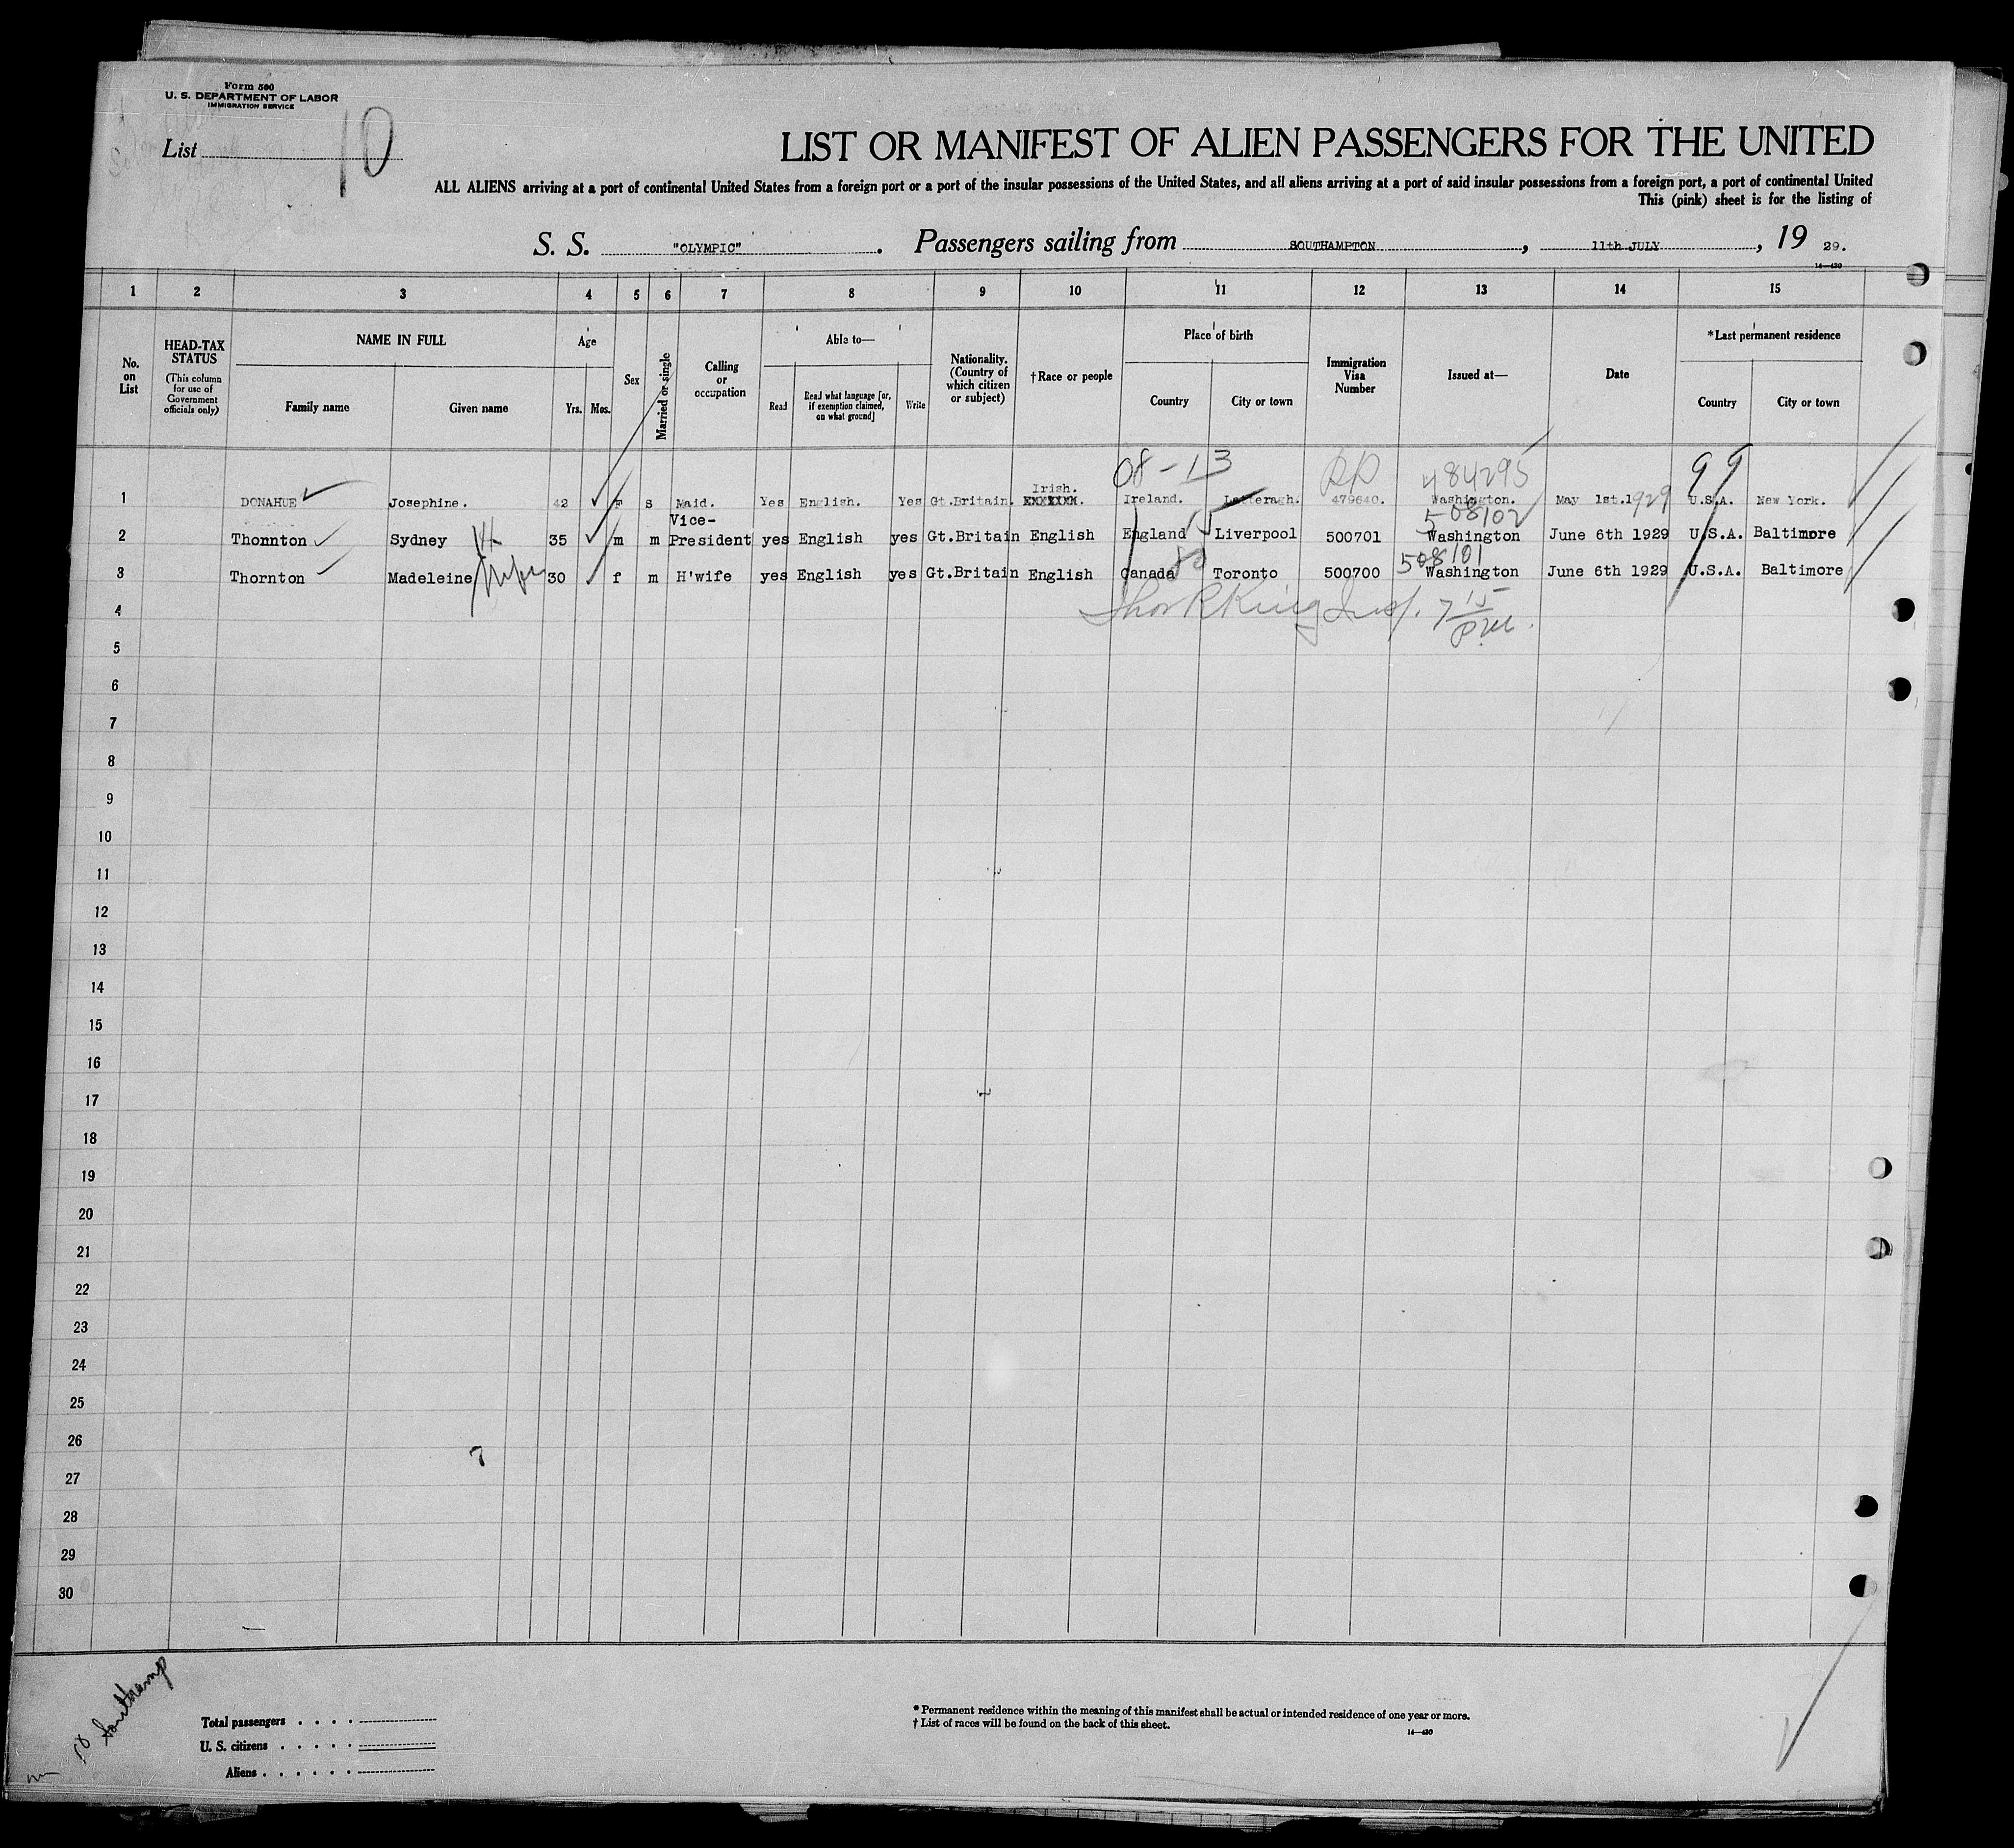 Form 500
U. S. DEPARTMENT OF LABOR
IMMIGRATION SERVICE
List 10
LIST OR MANIFEST OF ALIEN PASSENGERS FOR THE UNITED
ALL ALIENS arriving at a port of continental United States from a foreign port or a port of the insular possessions of the United States, and all aliens arriving at a port of said insular possessions from a foreign port, a port of continental United
This (pink) sheet is for the listing of
S. S. "OLYMPIC". Passengers sailing from SOUTHAMPTON, 11th JULY, 19 29.
14—430
1 2 3 4 5 6 7 8 9 10 11 12 13 14 15
No. on List
HEAD-TAX STATUS (This column for use of Government officials only)
NAME IN FULL
Family name Given name
Age
Yrs. Mos.
Sex
Married or single
Calling or occupation
Able to—
Read Read what language [or, if exemption claimed, on what ground] Write
Nationality. (Country of which citizen or subject)
†Race or people
Place of birth
Country City or town
Immigration Visa Number
Issued at—
Date
*Last permanent residence
Country City or town
08-13 RP 484295 99
Irish.
1 DONAHUE Josephine. 42 f s Maid. Yes English. Yes Gt.Britain. Ireland. Letteragh. 479640. Washington. May 1st.1929 U.S.A. New York.
Vice- 508102
2 Thornton Sydney 35 m m President yes English yes Gt.Britain English England Liverpool 500701 Washington June 6th 1929 U.S.A. Baltimore
508101
3 Thornton Madeleine 30 f m H'wife yes English yes Gt.Britain English Canada Toronto 500700 Washington June 6th 1929 U.S.A. Baltimore
4 King Insp. 7 15 PM.
5
6
7
8
9
10
11
12
13
14
15
16
17
18
19
20
21
22
23
24
25
26
27
28
29
30
Southamp
Total passengers
U. S. citizens
Aliens
* Permanent residence within the meaning of this manifest shall be actual or intended residence of one year or more.
† List of races will be found on the back of this sheet.
14—430